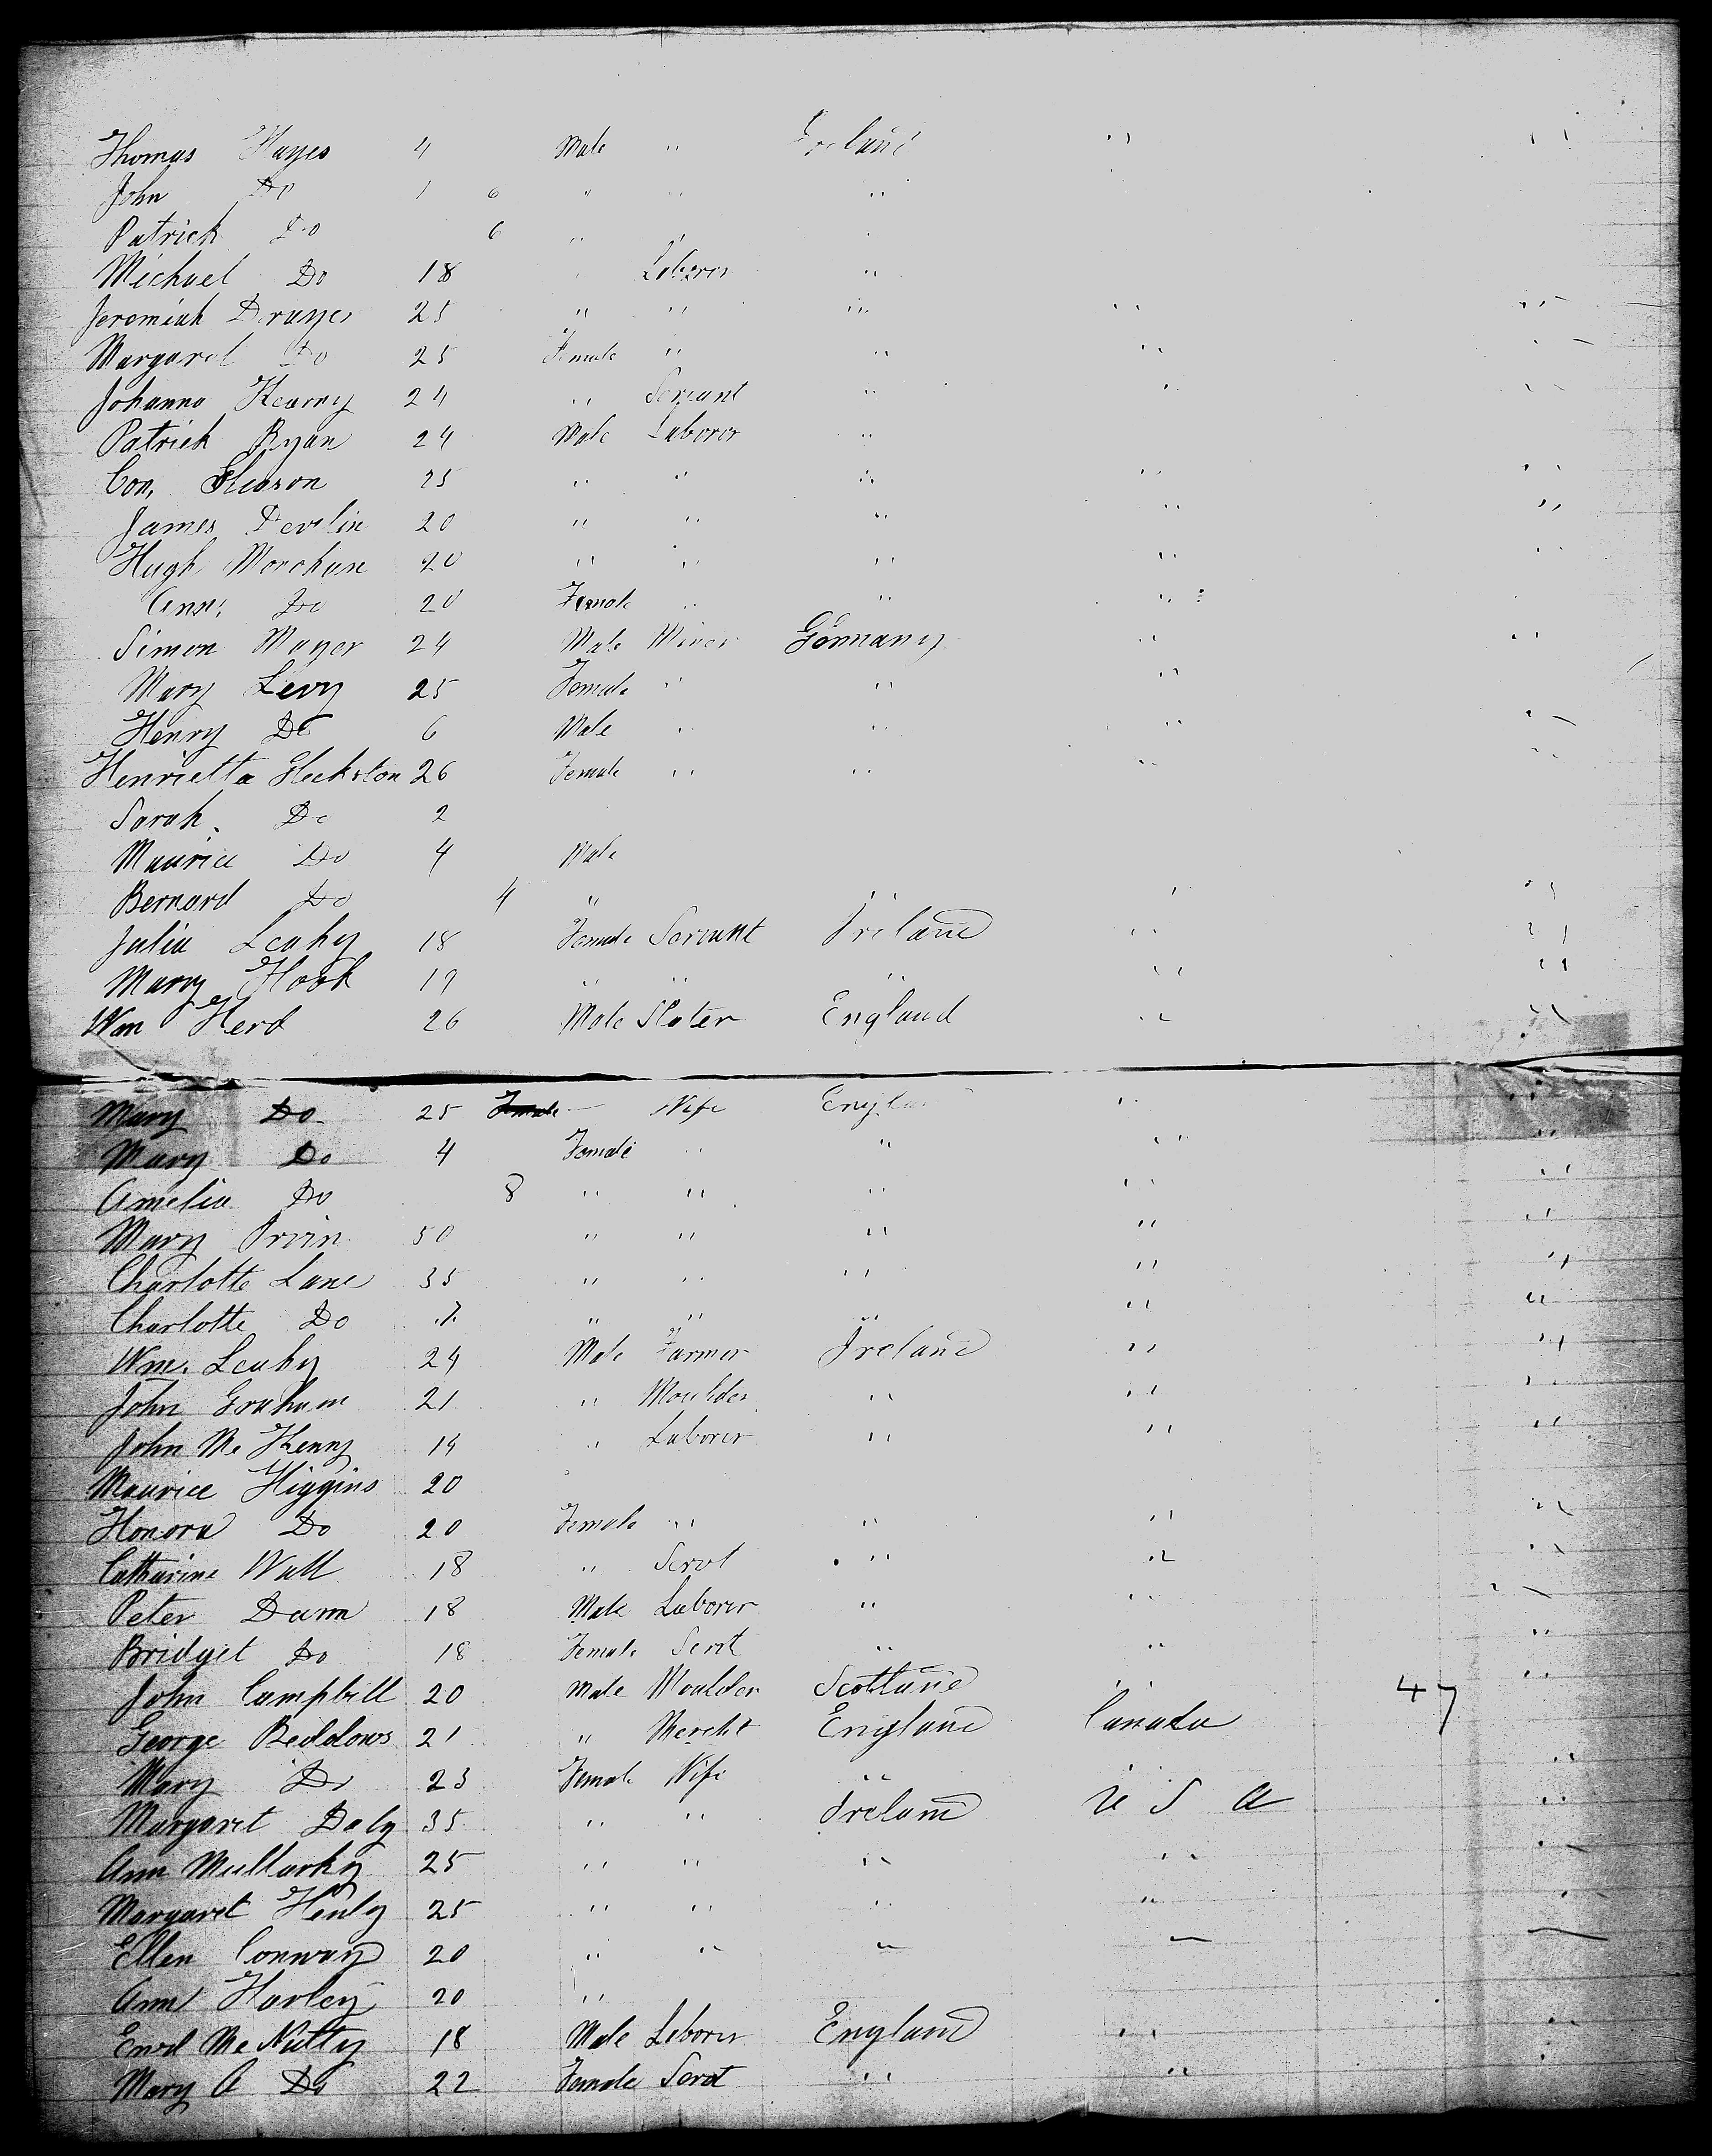 Thomas Hayes 4 Male " Ireland " "
John Do 1 6 " " "
Patrick Do 6 " " "
Michael Do 18 " Laborer "
Jeremiah 25 " " " " "
Margaret Do 25 Female " " " "
Johanna Kearny 24 " Servant " " "
Patrick Ryan 24 Male Laborer "
Con. Gleason 25 " " " " "
James Devlin 20 " " " " "
Hugh 20 " " " " "
Ann Do 20 Female " " "
Simon Mayer 24 Male Miner Germany " "
Mary Levy 25 Female " " "
Henry Do 6 Male " " " "
Henrietta 26 Female " " " "
Sarah Do 2
Maurice Do 4 Male
Bernard Do 4 " " "
Julia Leahy 18 Female Servant Ireland " "
Mary Hook " " " " "
Wm Herd 26 Male Slater England " "
Mary Do 25 Wife England " "
Mary Do 4 Female " " " "
Amelia Do 8 " " " " "
Mary 50 " " " " "
Charlotte Lane 35 " " " " "
Charlotte Do " " " " "
Wm. Leahy 24 Male Farmer Ireland " "
John Graham 21 " Moulder " " "
John Mc Kenny 19 " Laborer " " "
Maurice Higgins 20 "
Honora Do 20 Female " " " "
Catharine Wall 18 " Servt " " "
Peter Dunn 18 Male Laborer " " "
Bridget Do 18 Female Servt " " "
John Campbell 20 Male Moulder Scotland " "
George Beddows 21 " Mercht England Canada 47
Mary Do 23 Female Wife " "
Margaret Daly 35 " " Ireland U S A "
Ann Mullarky 25 " " " " "
Margaret Henly 25 " " " " "
Ellen Conway 20 " " " " "
Ann Harley 20 "
Ewd Mc Nulty 18 Male Laborer England " "
Mary A Do 22 Female Servt " " "